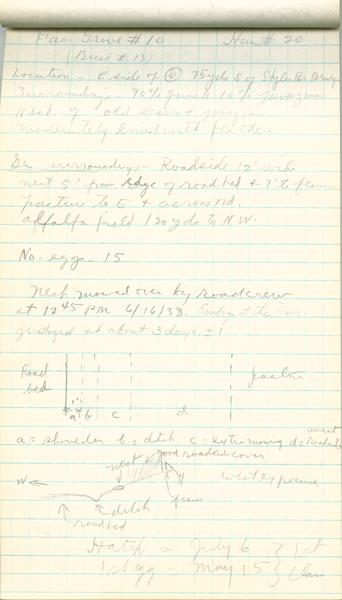 Grove # 10 Hen # 20
(Brood # 13)
Location - E side of 75 yds S of
Surroundings. 90% quack 10%
Nest of old leaves &
moderately lined with feathers
Gen. surroundings - Roadside 12' wide
nest 5' from edge of road bed & 7' to fence
pasture to E & across rd.
alfalfa field 120 yds to N.W.
No. eggs - 15
Nest mowed over by road crew
at 12 45 PM 6/16/38. at the time
judged at about 3 days ± 1
Road
bed
pasture
a b c d
a = shoulder b = ditch c = extra mowing d =
nest good roadside cover
W ← west exposure
fence
ditch
roadbed
Hatch = July 6 } 1st
1st egg = May 15 } Class